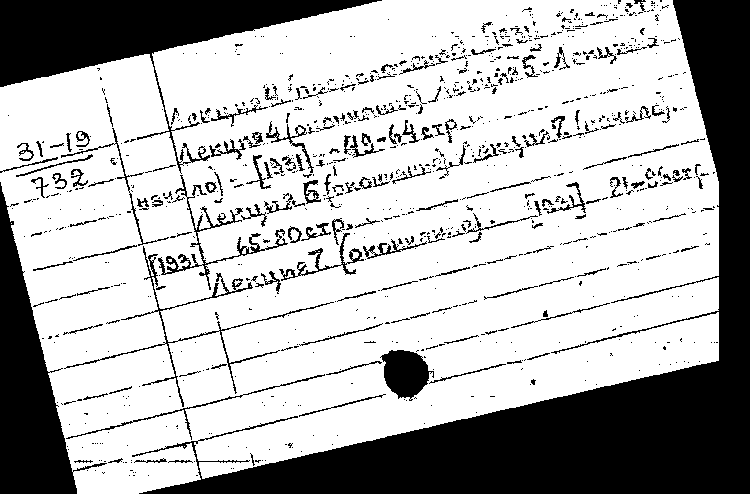 31-19
732
Лекция 4 (продолжение). [1931] 33-
Лекция 4 (окончание) Лекция 5 - Лекция 6
начало) - [1931]. - 49-64 стр.
Лекция 6 (окончание). Лекция 7. (начало).
[1931] 65-80 стр.
Лекция 7 (окончание). [1931] 81-86 стр